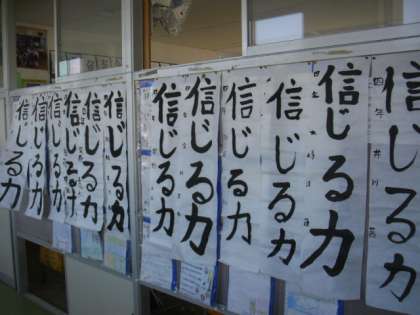 信じる力
信じる力
信じる力
信じる力
信じる力
信じる力
信じる力
信じる力
信じる力
信じる力
信じる力
信じる力